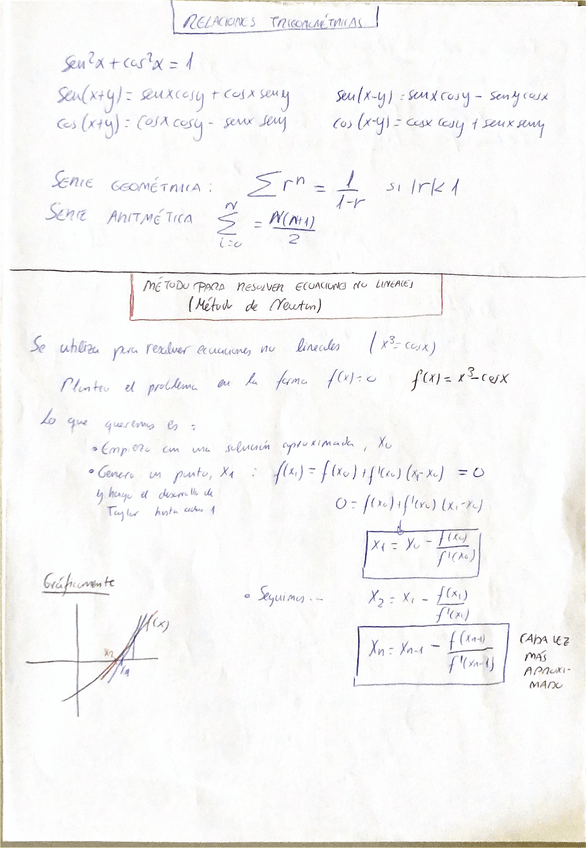 RELACIONES TRIGONOMÉTRICAS
sen²x + cos²x = 1
sen(x+y) = senx cosy + cosx seny    sen(x-y) = senx cosy - seny cosx
cos(x+y) = cosx cosy - senx seny    cos(x-y) = cosx cosy + senx seny
SERIE GEOMÉTRICA: ∑ rⁿ = 1/(1-r) si |r|<1
SERIE ARITMÉTICA ∑_{i=0}^{N} = N(N+1)/2
MÉTODO PARA RESOLVER ECUACIONES NO LINEALES
(Método de Newton)
Se utiliza para resolver ecuaciones no lineales (x³-cosx)
Planteo el problema en la forma f(x)=0    f(x) = x³-cosx
Lo que queremos es:
• Empiezo con una solución aproximada, x₀
• Genero un punto, x₁ : f(x₁) = f(x₀) + f'(x₀)(x₁-x₀) = 0
y hago el desarrollo de
Taylor hasta orden 1
0 = f(x₀) + f'(x₀)(x₁-x₀)
x₁ = x₀ - f(x₀)/f'(x₀)
Gráficamente
• Seguimos...    x₂ = x₁ - f(x₁)/f'(x₁)
f(x)
x₂
x₁
xₙ = xₙ₋₁ - f(xₙ₋₁)/f'(xₙ₋₁)
CADA VEZ
MÁS
APROXI-
MADO